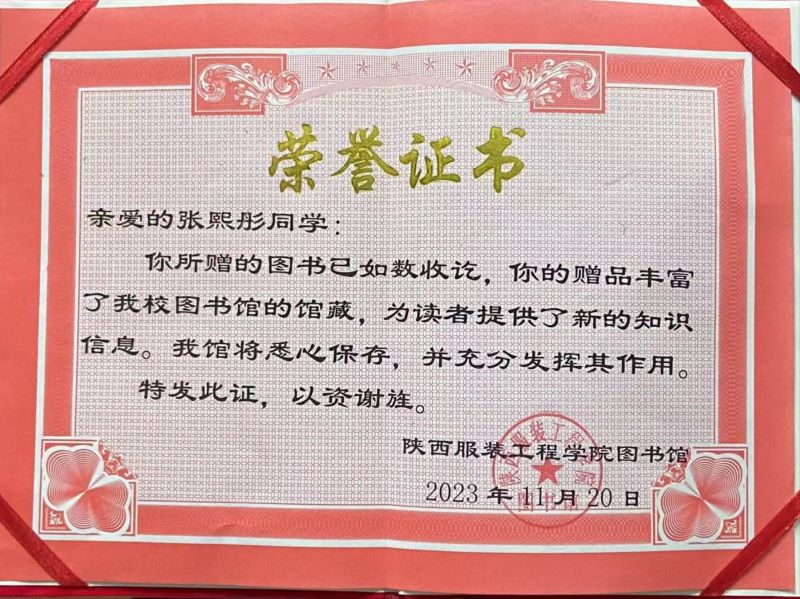 荣誉证书
亲爱的张熙彤同学：
你所赠的图书已如数收讫，你的赠品丰富
了我校图书馆的馆藏，为读者提供了新的知识
信息。我馆将悉心保存，并充分发挥其作用。
特发此证，以资谢旌。
陕西服装工程学院图书馆
2023 年 11 月 20 日
陕西服装工程学院
图书馆